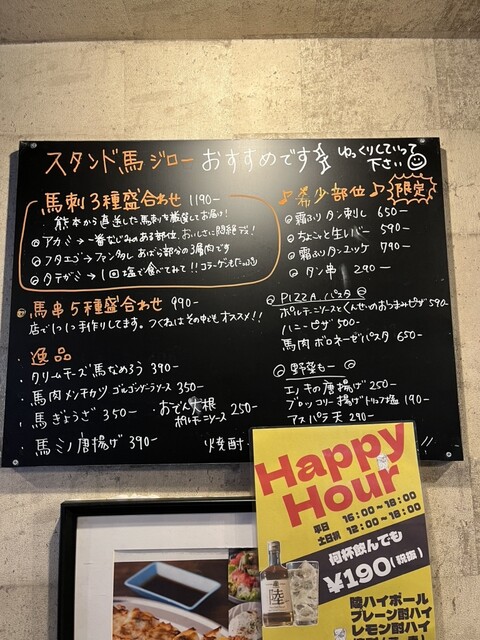 スタンド馬ジロー おすすめです
ゆっくりしていって
下さい
馬刺3種盛合わせ 1190-
熊本から直送した馬刺を厳選してお届け!
アカミ→一番なじみのある部位、おいしさに悶絶死!
フタエゴ→ファンタレ あばら部分の3層肉です
タテガミ→1回塩で食べてみて!!コラーゲンもたっぷり
馬串5種盛合わせ 990-
店で1つ1つ手作りしてます。つくねはその中でもオススメ!!
逸品
クリームチーズ馬なめろう 390-
馬肉メンチカツ ゴルゴンゾーラソース 350-
馬ぎょうざ 350-
馬ミノ唐揚げ 390-
・おでん大根
ポルチーニソース 250-
焼酎
♪希少部位♪ 限定
霜ふりタン刺し 650-
ちょこっと生レバー 590-
霜ふりタンユッケ 790-
タン串 290-
PIZZA パスタ
ポルチーニソースとくんせいのおつまみピザ 590-
ハニーピザ 500-
馬肉ボロネーゼパスタ 650-
野菜も
エノキの唐揚げ 250-
ブロッコリー揚げトリュフ塩 190-
アスパラ天 290-
!!
Happy
Hour
平日 16:00~18:00
土日祝 12:00~18:00
何杯飲んでも
¥190(税抜)
陸
陸ハイボール
プレーン酎ハイ
レモン酎ハイ